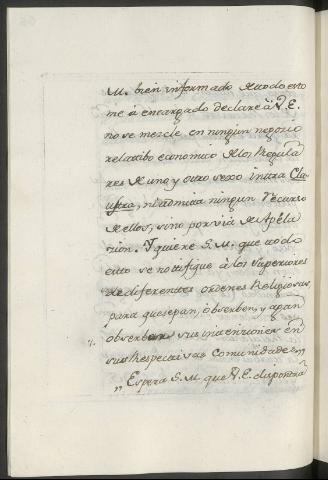 M. bien informado de todo esto
me à encargado declare à V. E.
no se mezcle en ningun negocio
relatibo economico de los Regula
res de uno y otro sexo intra Cla
ustra, ni admita ningun recurso
de ellos, sino por via de Apela
zion. Y quiere S. M. que todo
esto se notifique à los Superiores
de diferentes ordenes Religiosas,
para que sepan, obserben, y agan
obserbar sus intenciones en
sus Respectivas Comunidades,,
,, Espera S. M. que V. E. dispondrà